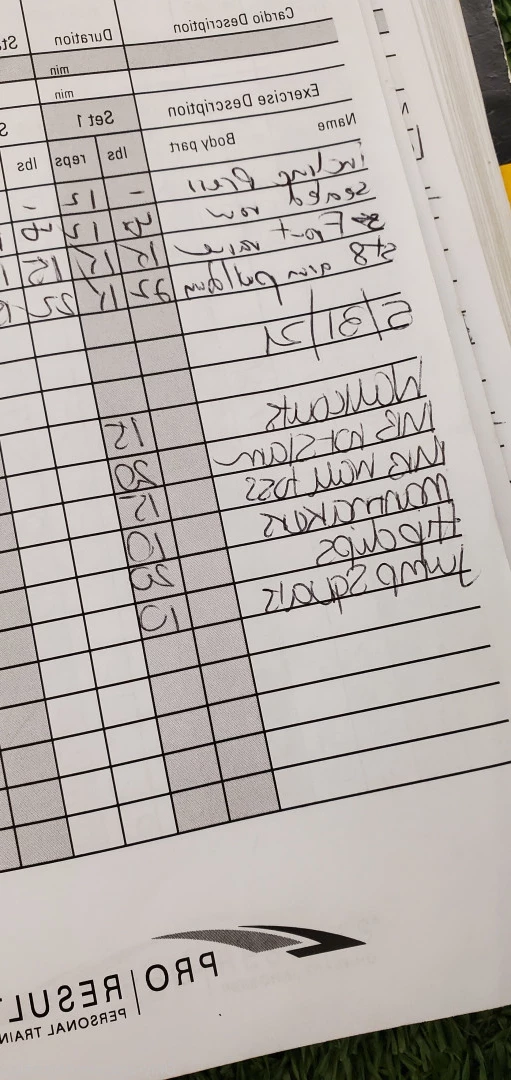 Cardio Description Duration
min
min
Exercise Description Set 1
Name Body part lbs reps lbs
incline press - 15 -
seated row 20 15 20
Front raise 12 12 12
st8 arm pulldown
5/31/21
Walkouts 15
MB slam 20
MB toss 12
10
Hip dips 20
Jump squats 10
PRO RESUL
PERSONAL TRAIN